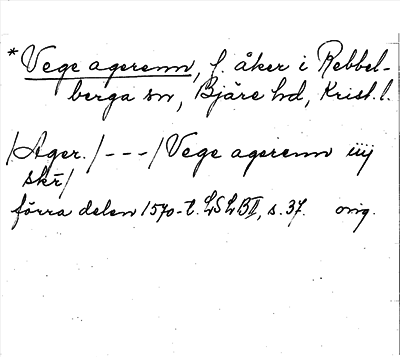 * Vege agerenn, f. åker i Rebbel-
berga sn, Bjäre hd, Krist. l.
/Ager./ --- / Vege agerenn iiij
skr̄/
förra delen 1570-t. LSLBII, s. 37. orig.